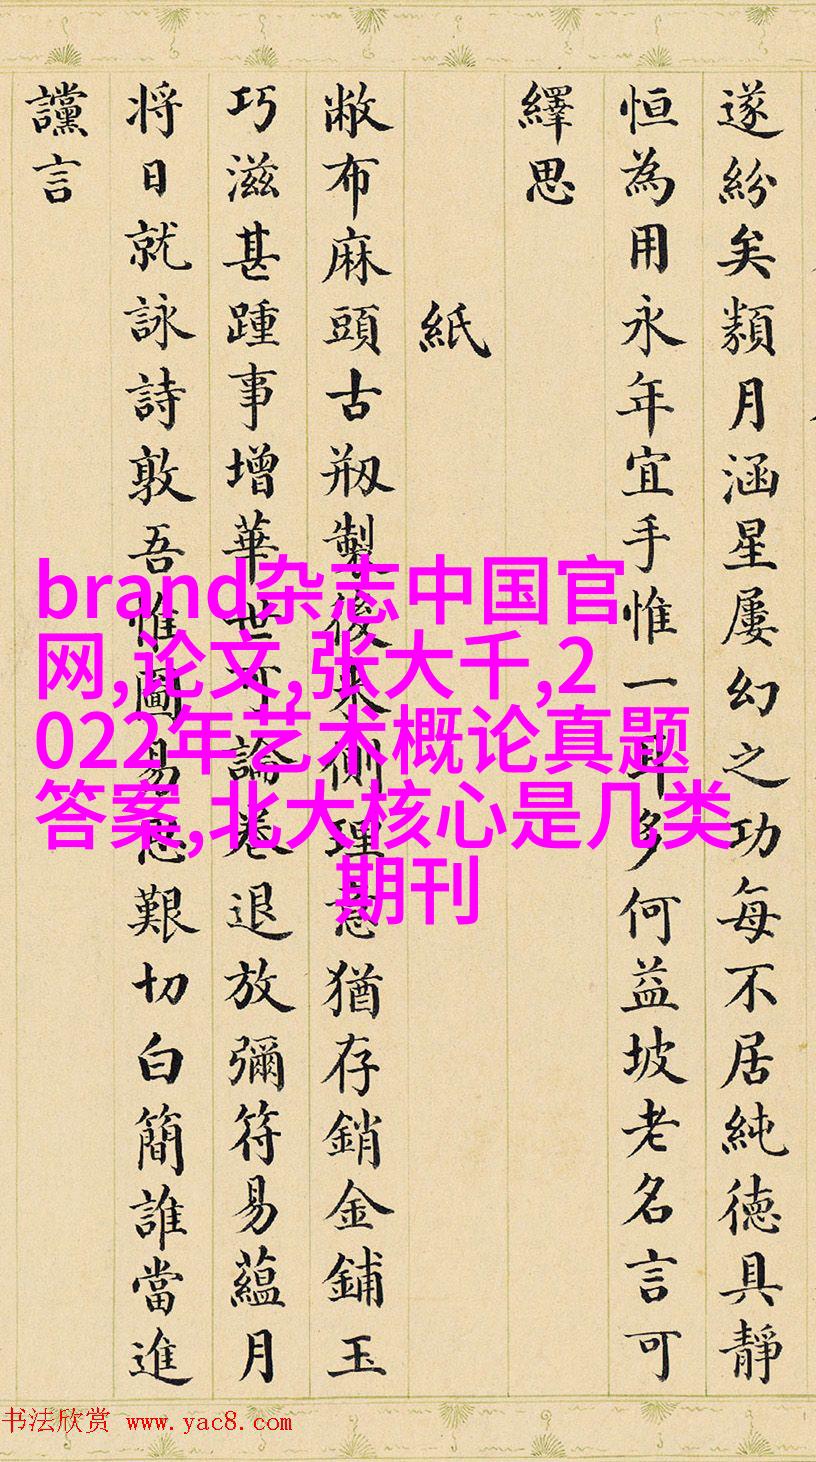 遂紛矣類月涵星屢幻之功每不居純德具靜
恒為用永年宜手惟一耳多何益坡老名言可
繹思
紙
敝布麻頭古剏製後来側理意猶存銷金鋪玉
巧滋甚踵事增華世可論卷退放彌符易蘊月
将日就詠詩敦吾惟圖易思艱切白簡誰當進
讜言
brand杂志中国官
网,论文,张大千,2
022年艺术概论真题
答案,北大核心是几类
期刊
书法欣赏 www.yac8.com